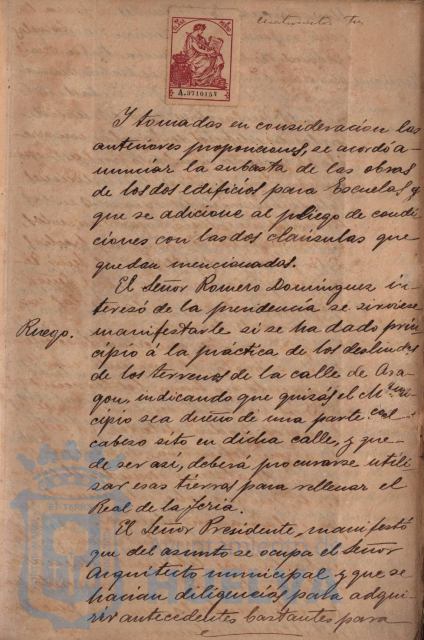 A.371015
Y tomadas en consideracion las
anteriores proposiciones, se acordó a-
nunciar la subasta de las obras
de los dos edificios para Escuelas y
que se adicione al pliego de condi-
ciones con las dos claúsulas que
quedan mencionadas.
El Señor Romero Dominguez in-
teresó de la presidencia se sirviese
Ruego.
manifestarle si se ha dado prin-
cipio á la práctica de los deslindes
de los terrenos de la calle de Ara-
gon, indicando que quizás el Muni-
cipio sea dueño de una parte del
cabezo sito en dicha calle, y que
de ser asi, deberá procurarse utili-
zar esas tierras para rellenar el
Real de la Feria.
El Señor Presidente, manifestó
que del asunto se ocupa el Señor
Arquitecto municipal y que se
harian diligencias para adqui-
rir antecedentes bastantes para